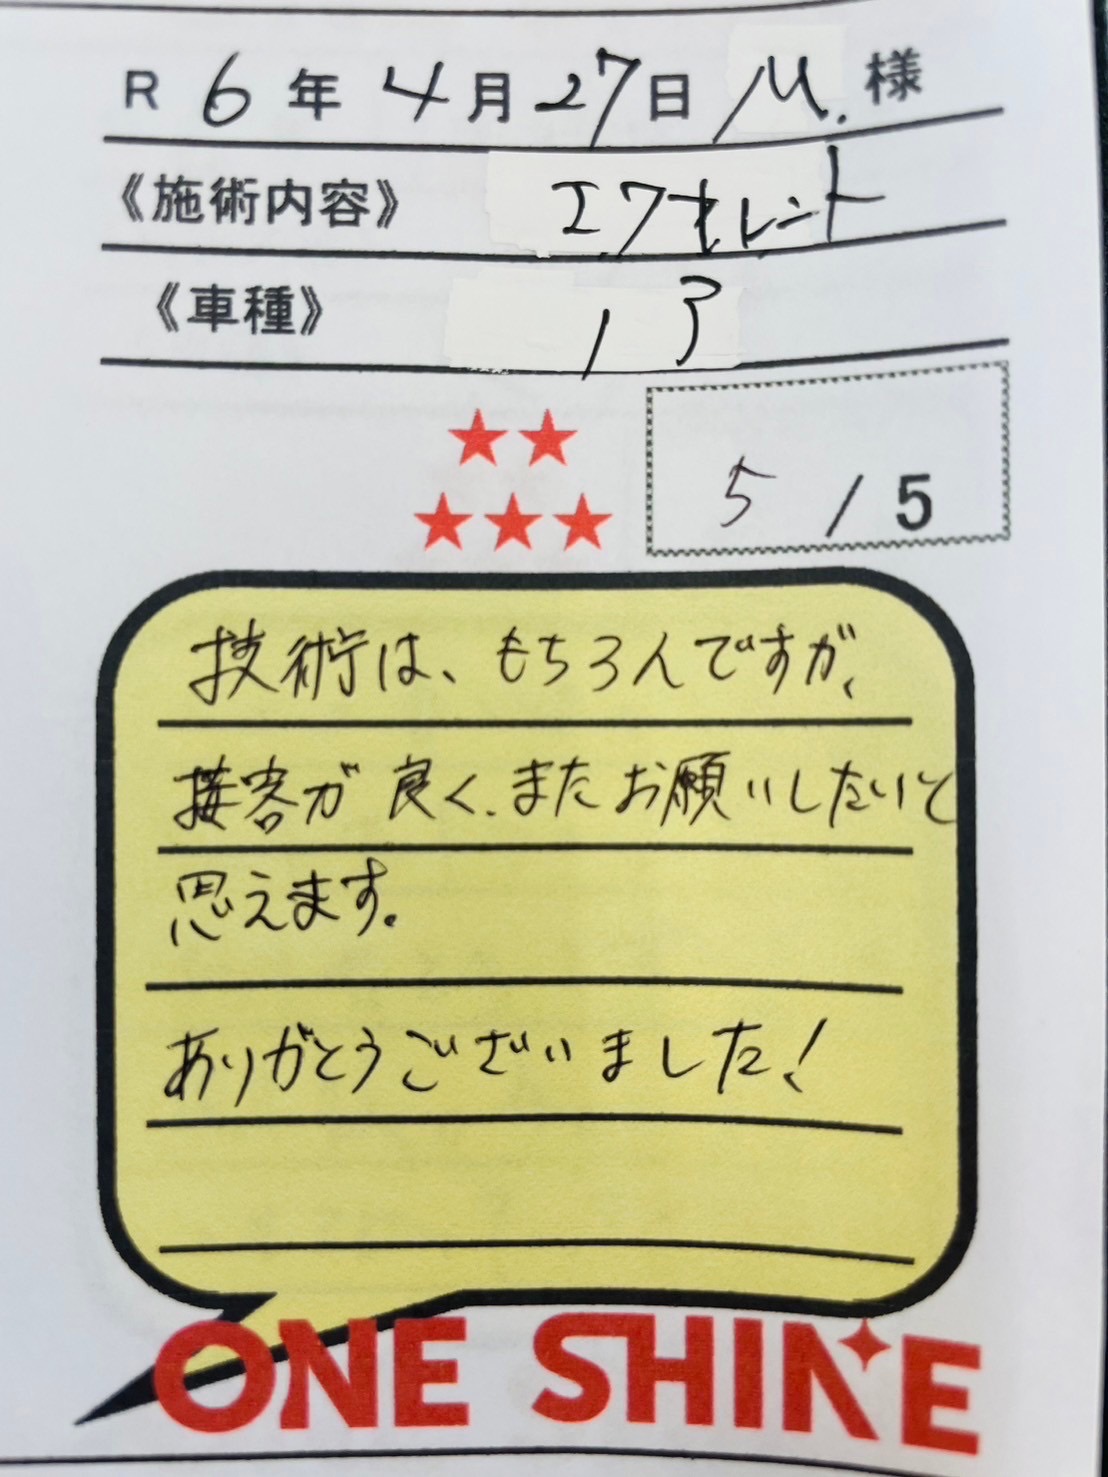 R 6年 4月 27日 M. 様
《施術内容》 エクセレント
《車種》
5 / 5
技術は、もちろんですが、
接客が良く、またお願いしたいと
思えます。
ありがとうございました!
ONE SHINE